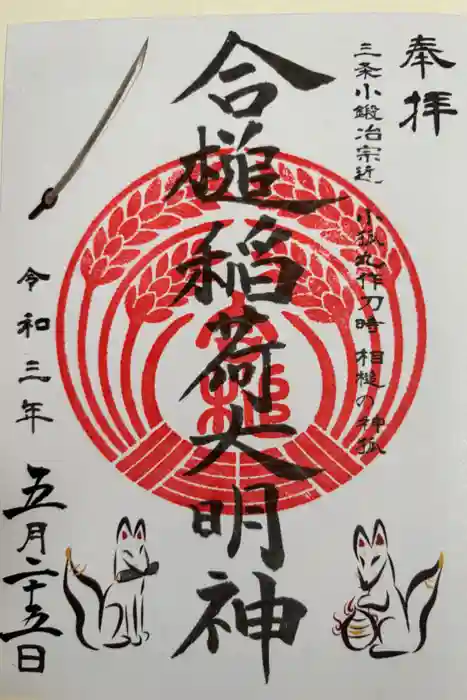 奉拝
三条小鍛冶宗近
小狐丸作刀時 相槌の神狐
合槌稲荷大明神
合槌
令和三年
五月二十五日